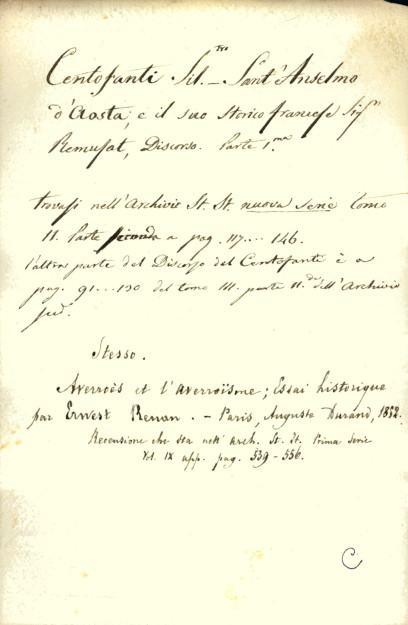 Centofanti Sil.tro – Sant'Anselmo
d'Aosta, e il suo storico francese Sigr
Remusat, Discorso. Parte 1.ma
trovasi nell'Archivio St. It. nuova serie tomo
II. Parte seconda a pag. 117... 146.
l'altra parte del Discorso del Centofanti è a
pag. 91... 130 del tomo III. parte II.da dell'Archivio
sud.
Stesso.
Averroès et l'averroïsme; Essai historique
par Ernest Renan. – Paris, Auguste Durand, 1852.
Recensione che sta nell'Arch. St. It. Prima Serie
Vol. IX app. pag. 539 – 556.
C